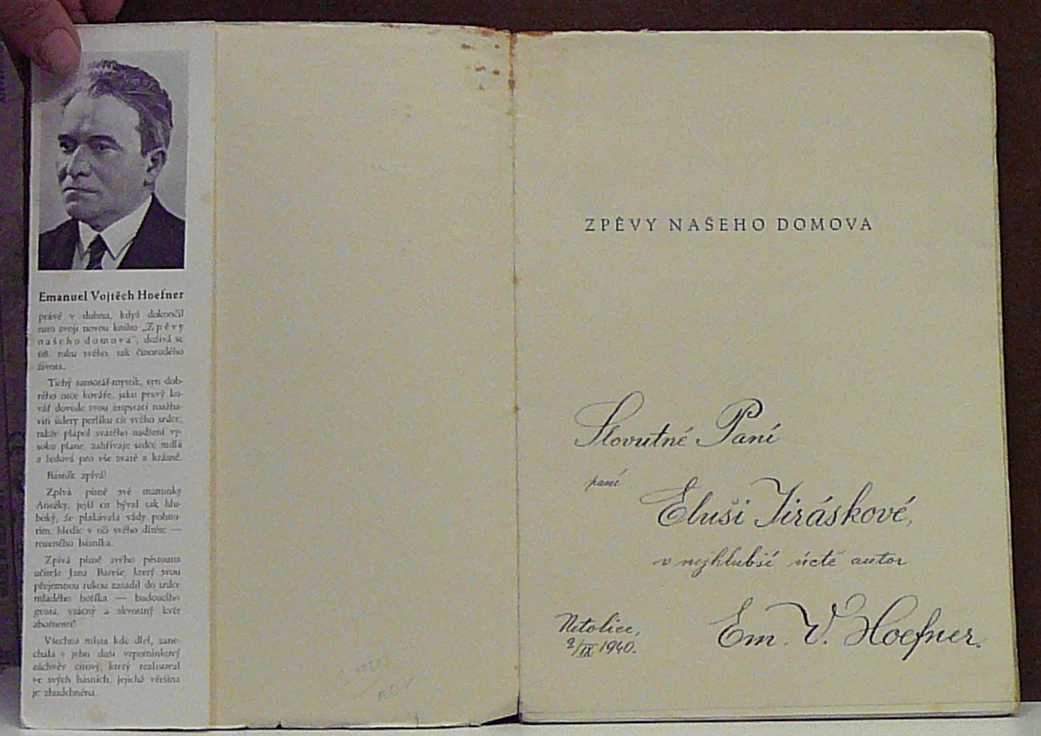 Emanuel Vojtěch Hoefner
právě v dubnu, když dokončil
tuto svoji novou knihu „Zpěvy
našeho domova“, dožívá se
roku svého, tak činorodého
života.
Tichý samotář-mystik, syn dob-
rého otce kováře, jako pravý ko-
vář dovede svou
údery perlíku do svého srdce,
takže plápol svatého nadšení vy-
soko plane, zahřívaje srdce mdlá
a ledová pro vše svaté a krásné.
Básník zpívá!
Zpívá písně své maminky
Anežky, jejíž cit býval tak hlu-
boký, že plakávala vždy pohnu-
tím, hledíc v oči svého dítěte —
rozeného básníka.
Zpívá písně svého pěstouna
učitele Jana Bareše, který svou
přejemnou rukou zasadil do srdce
mladého hošíka — budoucího
genia, vzácný a skvostný květ
Všechna místa kde dlel, zane-
chala v jeho duši vzpomínkový
záchvěv citový, který realisoval
ve svých básních, jejichž většina
je zhudebněna.
ZPĚVY NAŠEHO DOMOVA
Slovutné Paní
paní
Eluši Jiráskové,
v nejhlubší úctě autor
Em. V. Hoefner.
Netolice,
9/IX 1940.